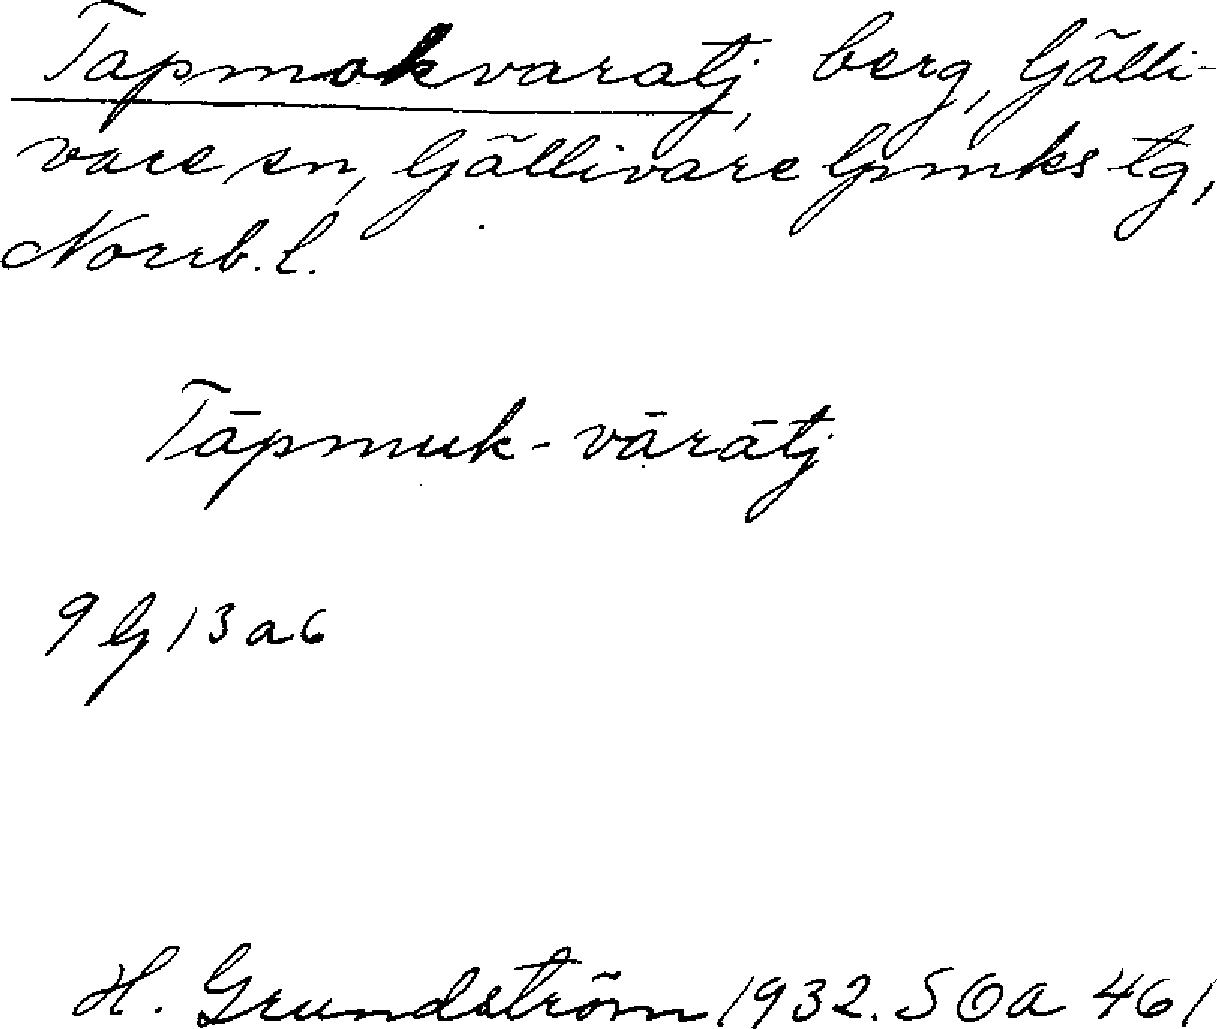 Tapmokvaratj, berg, Gälli-
vare sn, Gällivare lpmks tg,
Norrb. l.
Tāpmuk-vārātj
9 G 13 a 6
H. Grundström 1932. SOa 461